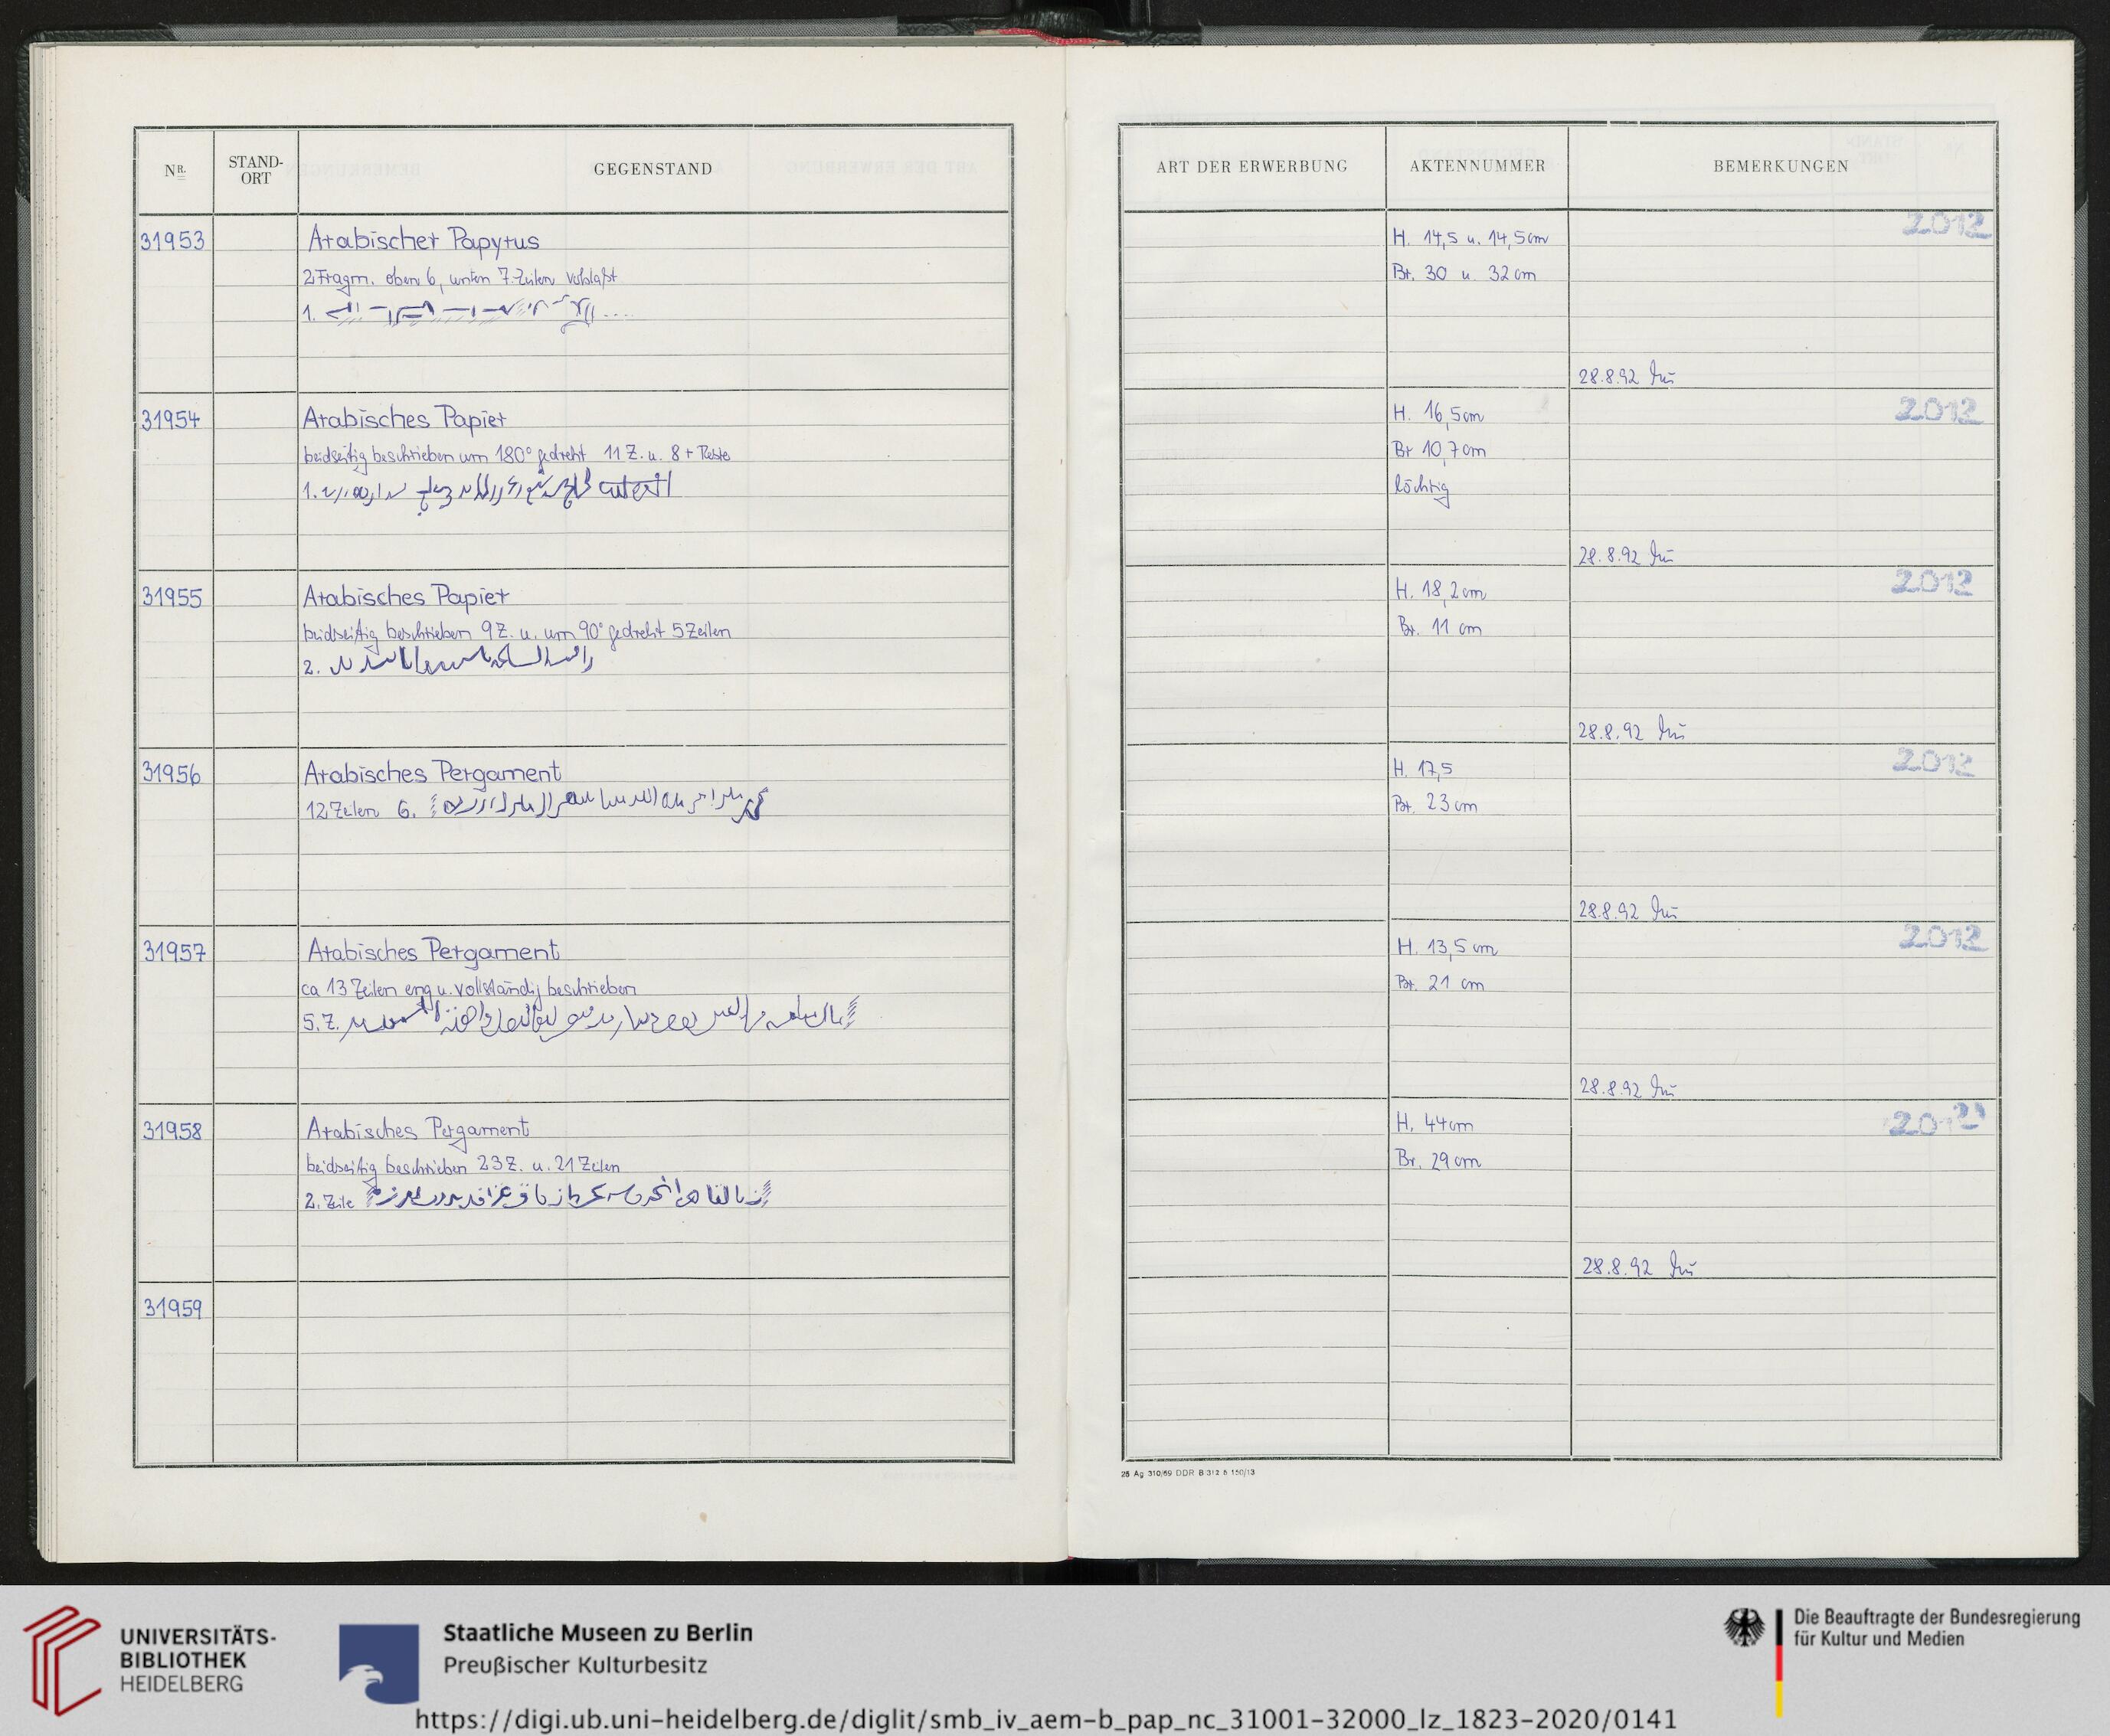 NR.
STAND-
ORT
GEGENSTAND
31953
Arabischer Papyrus
2 Fragm. oben 6, unten 7 Zeilen verblaßt
1.
31954
Arabisches Papier
beidseitig beschrieben um 180° gedreht 11 Z. u. 8 + Reste
1.
31955
Arabisches Papier
beidseitig beschrieben 9 Z. u. um 90° gedreht 5 Zeilen
2.
31956
Arabisches Pergament
12 Zeilen 6.
31957
Arabisches Pergament
ca 13 Zeilen eng u. vollständig beschrieben
5. Z.
31958
Arabisches Pergament
beidseitig beschrieben 23 Z. u. 21 Zeilen
2. Zeile
31959
ART DER ERWERBUNG
AKTENNUMMER
BEMERKUNGEN
2012
H. 14,5 u. 14,5 cm
Br. 30 u. 32 cm
28.8.92
2012
H. 16,5 cm
Br 10,7 cm
löchrig
28.8.92
2012
H. 18,2 cm
Br. 11 cm
28.8.92
2012
H. 17,5
Br. 23 cm
28.8.92
2012
H. 13,5 cm
Br. 21 cm
28.8.92
2012
H. 44 cm
Br. 29 cm
28.8.92
25 Ag 310/69 DDR B 312 6 150/13
UNIVERSITÄTS-
BIBLIOTHEK
HEIDELBERG
Staatliche Museen zu Berlin
Preußischer Kulturbesitz
Die Beauftragte der Bundesregierung
für Kultur und Medien
https://digi.ub.uni-heidelberg.de/diglit/smb_iv_aem-b_pap_nc_31001-32000_lz_1823-2020/0141